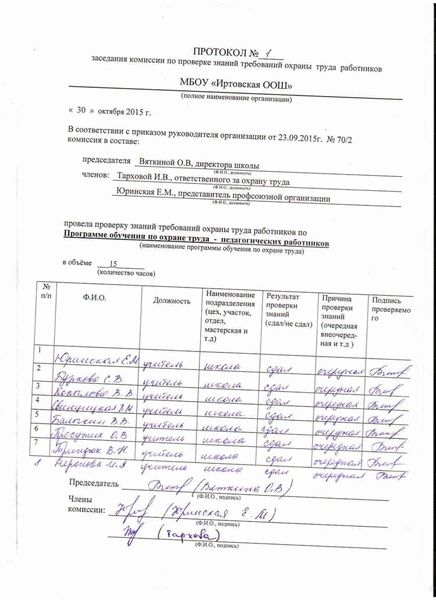 ПРОТОКОЛ № 1
заседания комиссии по проверке знаний требований охраны труда работников
МБОУ «Иртовская ООШ»
(полное наименование организации)
« 30 » октября 2015 г.
В соответствии с приказом руководителя организации от 23.09.2015г. № 70/2
комиссия в составе:
председателя Вяткиной О.В, директора школы
(Ф.И.О., должность)
членов: Тарховой И.В., ответственного за охрану труда
(Ф.И.О., должность)
Юринская Е.М., представитель профсоюзной организации
(Ф.И.О., должность)
провела проверку знаний требований охраны труда работников по
Программе обучения по охране труда - педагогических работников
(наименование программы обучения по охране труда)
в объёме 15
(количество часов)
№ п/п Ф.И.О. Должность Наименование подразделения (цех, участок, отдел, мастерская и т.д) Результат проверки знаний (сдал/не сдал) Причина проверки знаний (очередная внеочеред-ная и т.д ) Подпись проверяемо го
1 Юринская Е.М учитель школа сдал очередная
2 Буркова С.В. учитель школа сдал очередная
3 учитель школа сдал очередная
4 учитель школа сдал очередная
5 В.В. учитель школа сдал очередная
6 О.В учитель школа сдал очередная
7 В.Н учитель школа сдал очередная
8 учитель школа сдал очередная
Председатель (Вяткина О.В)
(Ф.И.О., подпись)
Члены
комиссии: (Юринская Е.М)
(Ф.И.О., подпись)
(Тархова)
(Ф.И.О., подпись)